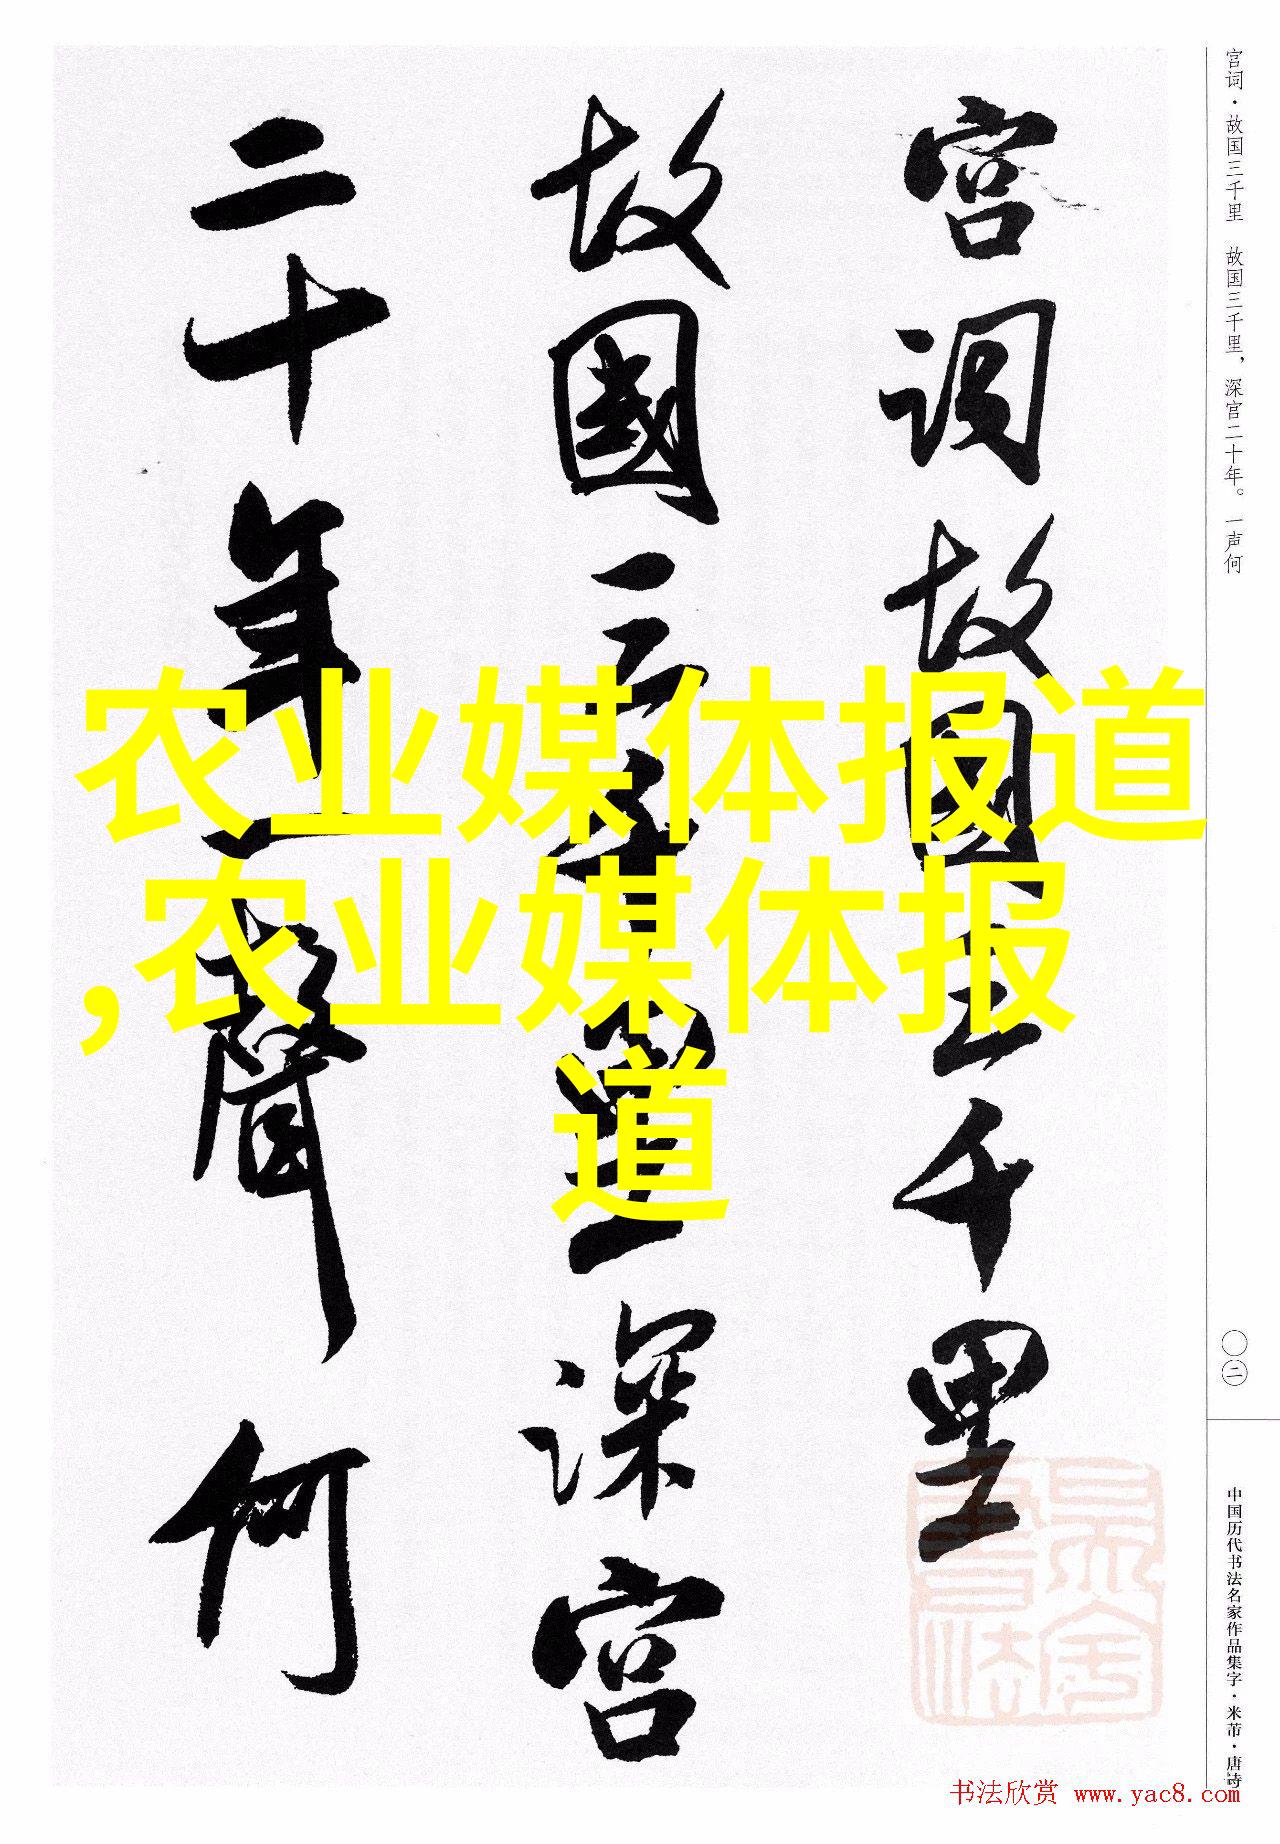 宫词·故国三千里 故国三千里，深宫二十年。一声何
宫词故国三千里
故國三千里深宫
二十年一聲何
农业媒体报道
,农业媒体报
道
〇二
中国历代书法名家作品集字·米芾·唐诗
书法欣赏 www.yac8.com